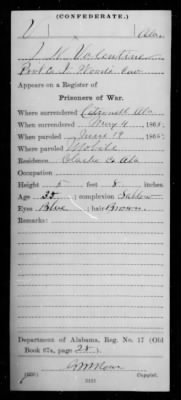 (CONFEDERATE.)
V Ala.
J. N. Valentine
Pvt Co. Woods Cav.
Appears on a Register of
Prisoners of War.
Where surrendered Citronelle Ala
When surrendered May 4, 1865.
When paroled June 19, 1865.
Where paroled Mobile
Residence Clarke Co Ala
Occupation
Height 5 feet 8 inches
Age 35; complexion Sallow
Eyes Blue; hair Brown.
Remarks:
Department of Alabama, Reg. No. 17 (Old
Book 67a, page 28).
Copyist.